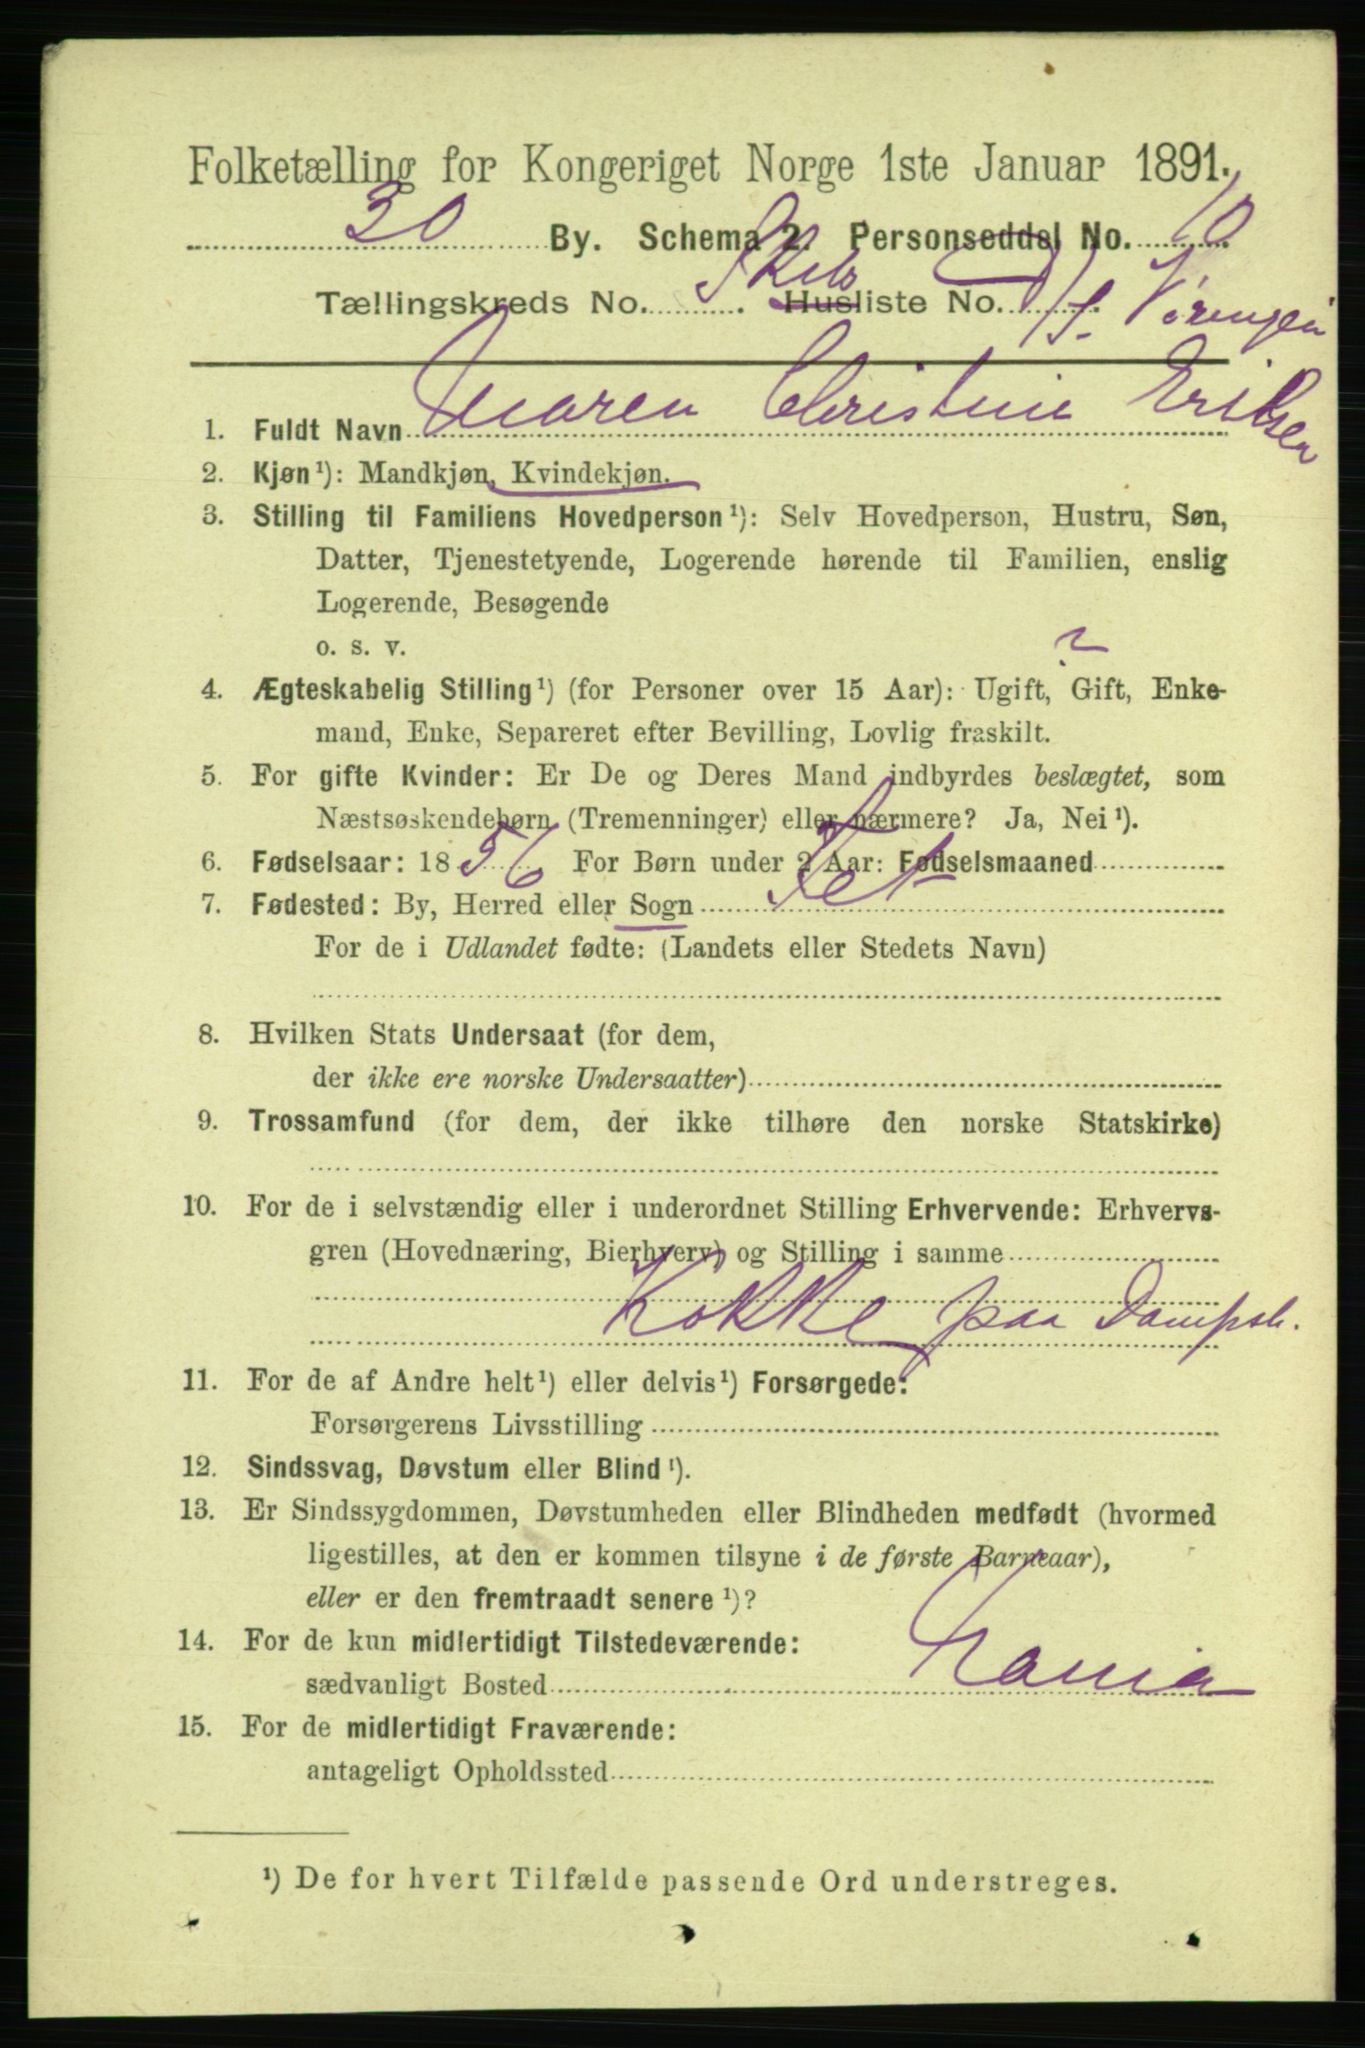 Folketælling for Kongeriget Norge 1ste Januar 1891.
30 By. Schema 2. Personseddel No. 10
Tællingskreds No. Skib Husliste No. D/S.
1. Fuldt Navn Maren Christine Eriksen
2. Kjøn ¹): Mandkjøn, Kvindekjøn.
3. Stilling til Familiens Hovedperson ¹): Selv Hovedperson, Hustru, Søn,
Datter, Tjenestetyende, Logerende hørende til Familien, enslig
Logerende, Besøgende
o. s. v.
?
4. Ægteskabelig Stilling ¹) (for Personer over 15 Aar): Ugift, Gift, Enke-
mand, Enke, Separeret efter Bevilling, Lovlig fraskilt.
5. For gifte Kvinder: Er De og Deres Mand indbyrdes beslægtet, som
Næstsøskendebørn (Tremenninger) eller nærmere? Ja, Nei ¹).
6. Fødselsaar: 1856 For Børn under 2 Aar: Fødselsmaaned
7. Fødested: By, Herred eller Sogn Fet
For de i Udlandet fødte: (Landets eller Stedets Navn)
8. Hvilken Stats Undersaat (for dem,
der ikke ere norske Undersaatter)
9. Trossamfund (for dem, der ikke tilhøre den norske Statskirke)
10. For de i selvstændig eller i underordnet Stilling Erhvervende: Erhvervs-
gren (Hovednæring, Bierhverv) og Stilling i samme
Kokke paa Dampsk.
11. For de af Andre helt ¹) eller delvis ¹) Forsørgede:
Forsørgerens Livsstilling
12. Sindssvag, Døvstum eller Blind ¹).
13. Er Sindssygdommen, Døvstumheden eller Blindheden medfødt (hvormed
ligestilles, at den er kommen tilsyne i de første Barneaar),
eller er den fremtraadt senere ¹)?
14. For de kun midlertidigt Tilstedeværende:
sædvanligt Bosted
15. For de midlertidigt Fraværende:
antageligt Opholdssted
¹) De for hvert Tilfælde passende Ord understreges.